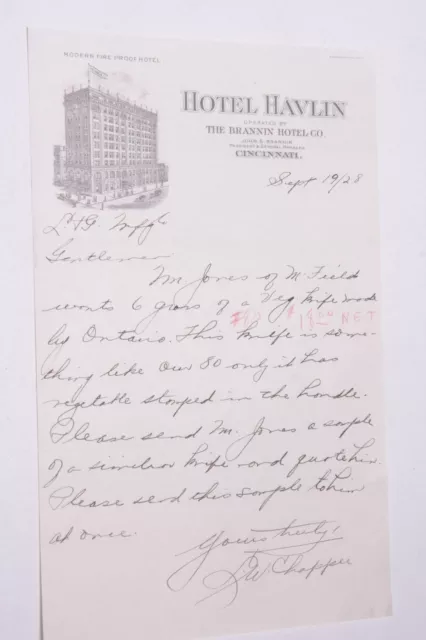 MODERN FIRE PROOF HOTEL
HOTEL HAVLIN
OPERATED BY
THE BRANNIN HOTEL CO.
CINCINNATI.
Sept 19/28
L & G Mfg Co
Gentlemen
Mr. Jones of M. Field
wants 6 gross of a Veg knife made
18.00 NET
by Ontario. This knife is some-
thing like our 80 only it has
vegetable stamped in the handle.
Please send Mr. Jones a sample
of a similar knife and quote him.
Please send this sample to him
at once.
Yours truly,